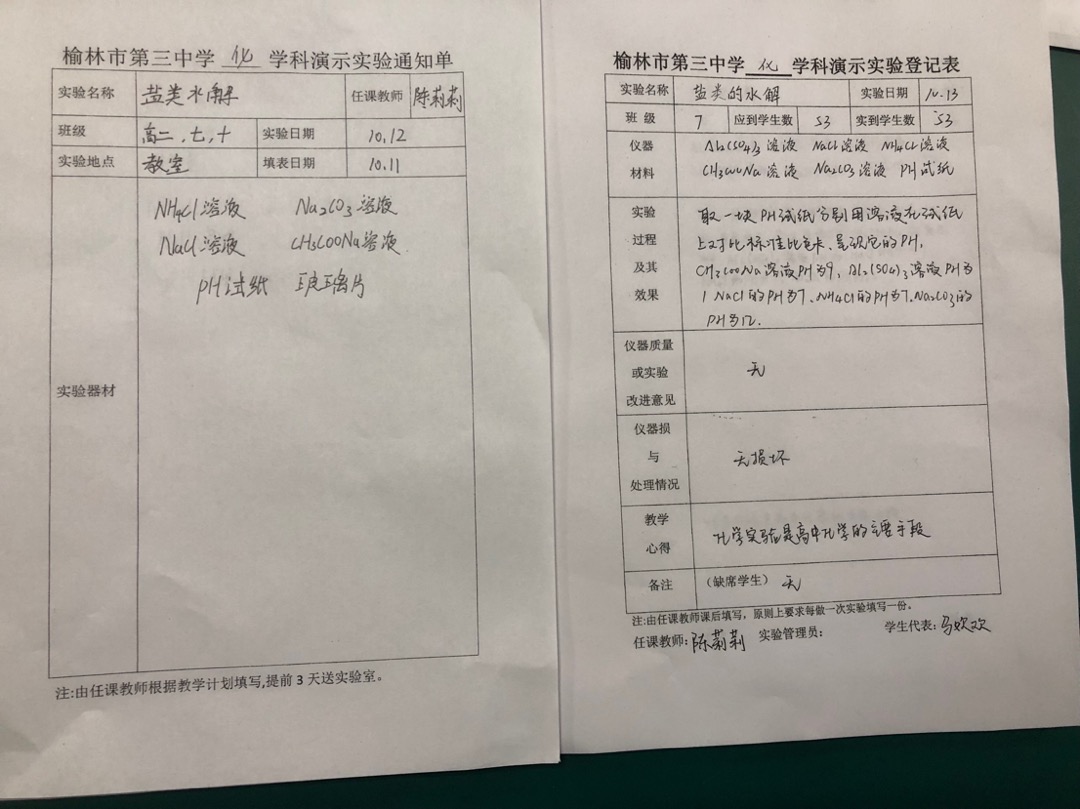 榆林市第三中学 化 学科演示实验通知单
实验名称 盐类水解 任课教师 陈莉莉
班级 高二、七、十 实验日期 10.12
实验地点 教室 填表日期 10.11
NH4Cl溶液 Na2CO3溶液
NaCl溶液 CH3COONa溶液
PH试纸 玻璃片
实验器材
注:由任课教师根据教学计划填写,提前 3 天送实验室。
榆林市第三中学 化 学科演示实验登记表
实验名称 盐类的水解 实验日期 10.13
班 级 7 应到学生数 53 实到学生数 53
仪器 Al2(SO4)3溶液 NaCl溶液 NH4Cl溶液
材料 CH3COONa溶液 Na2CO3溶液 PH试纸
实验 取一块PH试纸分别用溶液在试纸
过程 上对比标准比色卡、呈现它的PH,
及其 CH3COONa溶液PH为9, Al2(SO4)3溶液PH为
效果 1 NaCl的PH为7、NH4Cl的PH为7、Na2CO3的
PH为12.
仪器质量
或实验 无
改进意见
仪器损
与 无损坏
处理情况
教学
心得 化学实验是高中化学的主要手段
备注 （缺席学生） 无
注:由任课教师课后填写，原则上要求每做一次实验填写一份。
任课教师: 陈莉莉 实验管理员: 学生代表: 马欢欢